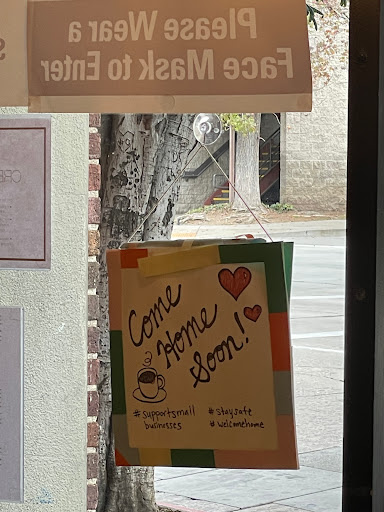 Please Wear a
Face Mask to Enter
Come
Home
Soon!
#supportsmall
businesses
#staysafe
#welcomehome